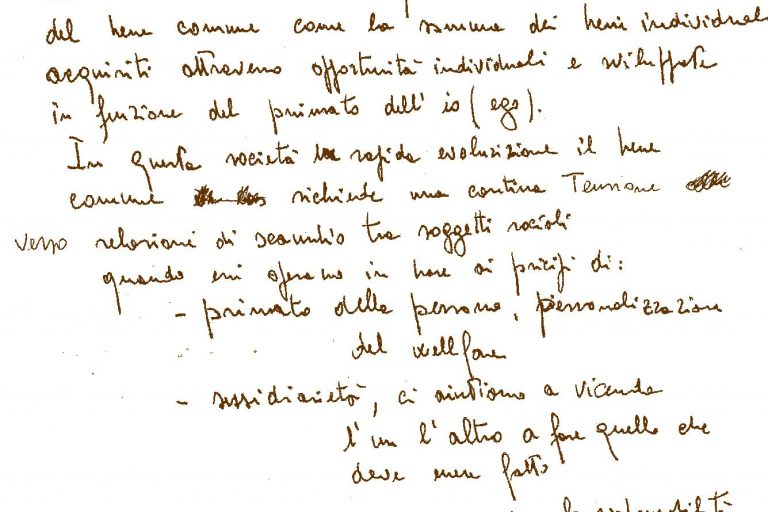 del bene comune come la somma dei beni individuali
acquisiti attraverso opportunità individuali e sviluppate
in funzione del primato dell' io (ego).
In questa società rapida evoluzizione il bene
comune richiede una continua Tensione
verso relazioni di scambio tra soggetti sociali
quando essi operano in base ai pricipi di:
- primato della persona, piersonalizzazione
del wellfare
- sussidiarietà, ci aiutiamo a vicenda
l'un l'altro a fare quello che
deve essere fatto